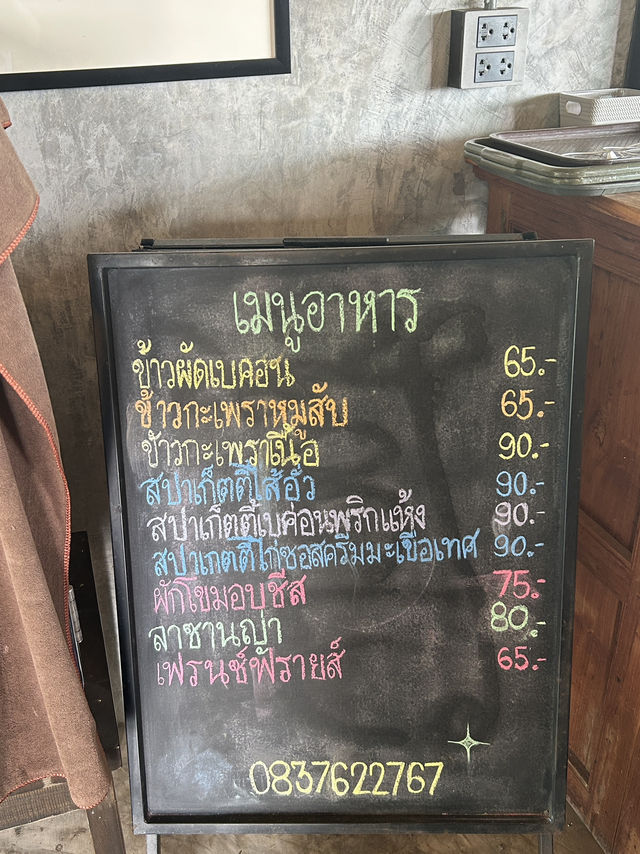 เมนูอาหาร
ข้าวผัดเบคอน 65.-
ข้าวกะเพราหมูสับ 65.-
ข้าวกะเพราเนื้อ 90.-
สปาเก็ตตี้ไส้อั่ว 90.-
สปาเก็ตตี้เบค่อนพริกแห้ง 90.-
สปาเกตตี้ไก่ซอสครีมมะเขือเทศ 90.-
ผักโขมอบชีส 75.-
ลาซานญ่า 80.-
เฟรนซ์ฟรายส์ 65.-
0837622767